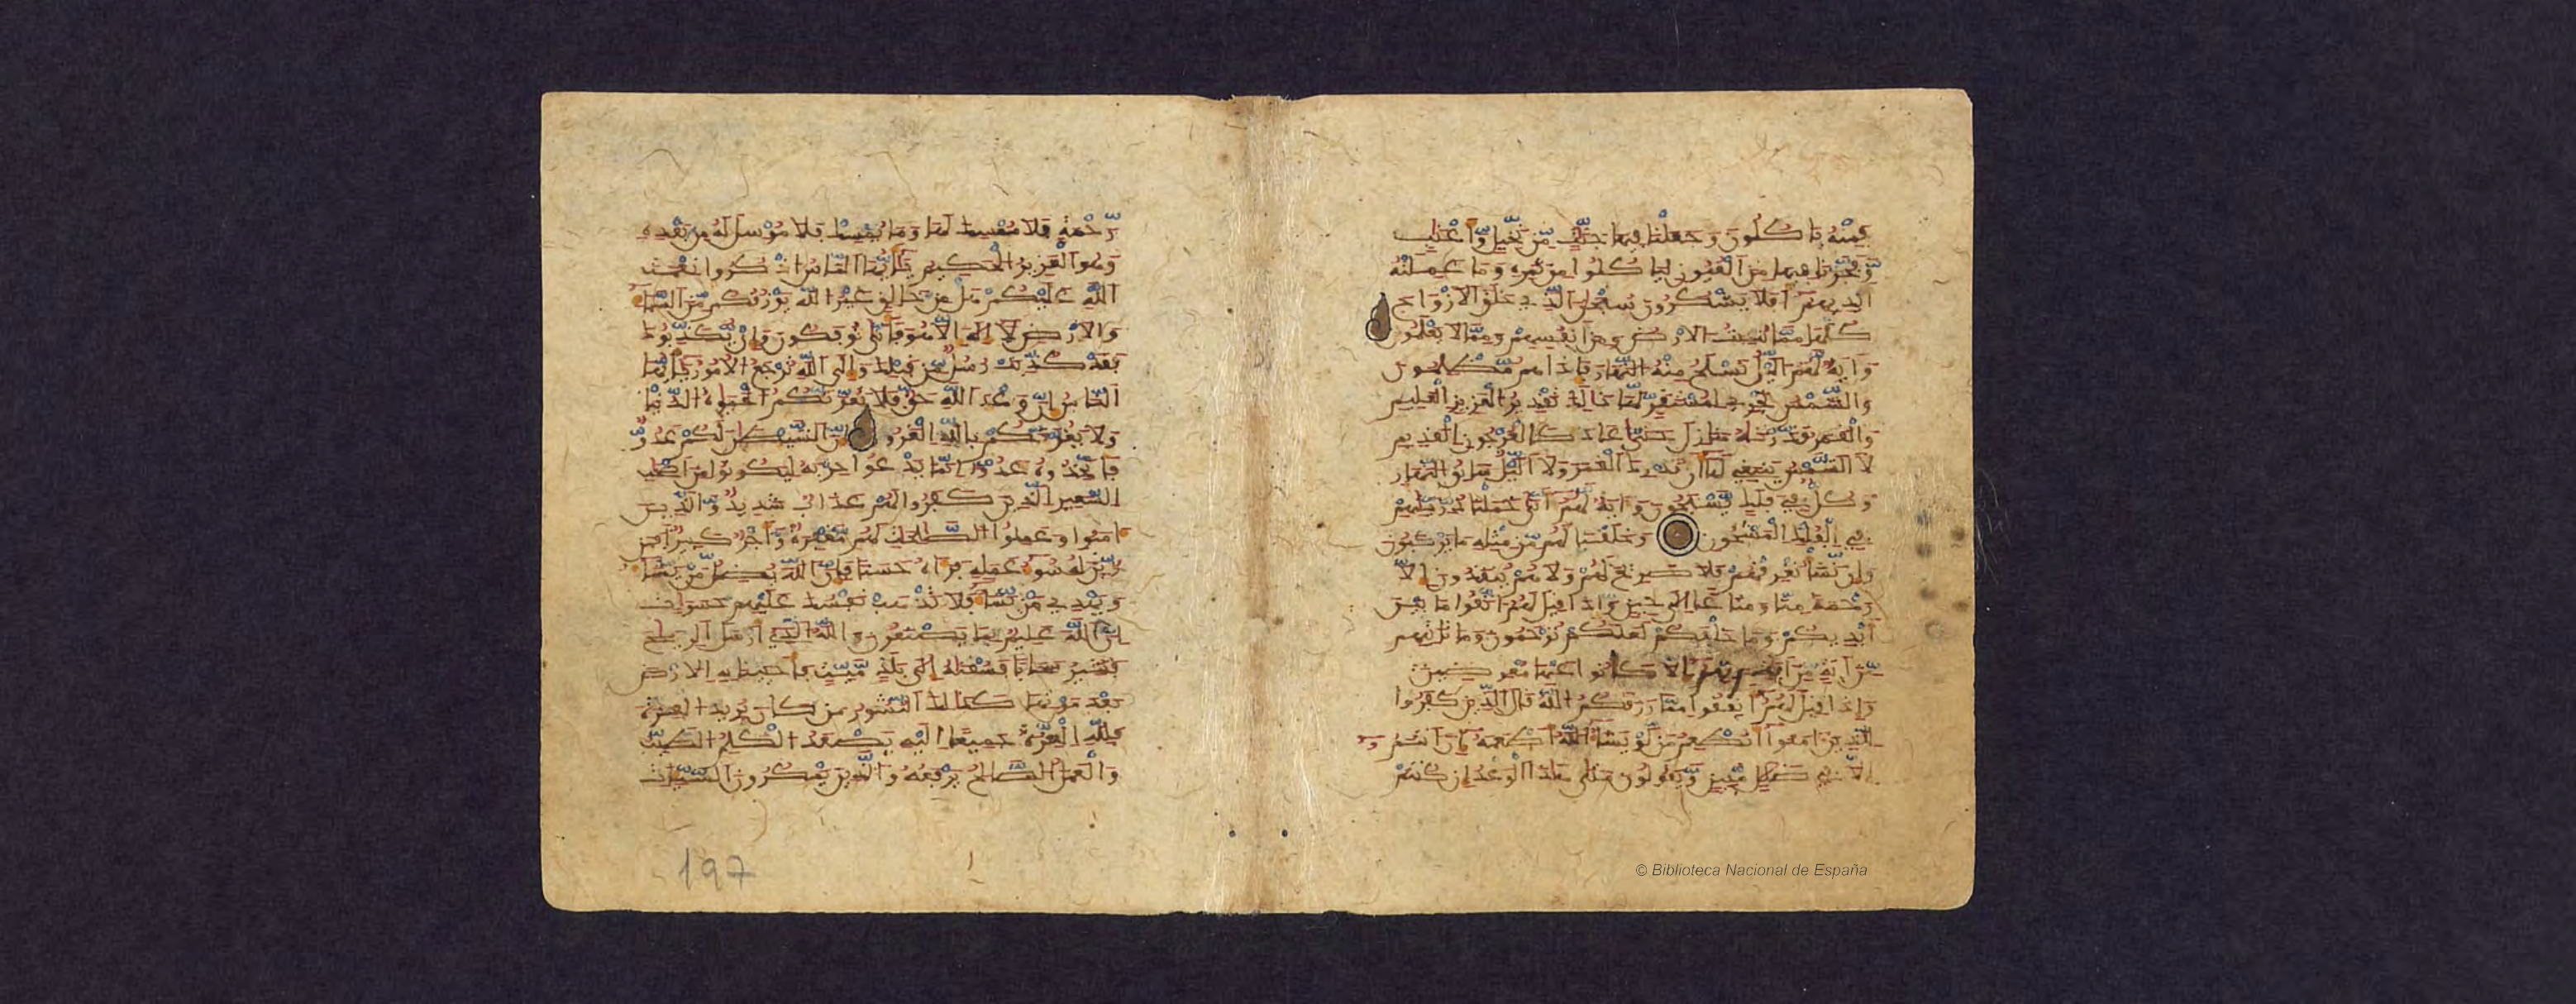 فَمِنْهُ يَاكُلُونَ وَجَعَلْنَا فِيهَا جَنَّٰتٍ مِّن نَّخِيلٍ وَّأَعْنَٰبٍ
وَّفَجَّرْنَا فِيهَا مِنَ ٱلْعُيُونِ لِيَاكُلُوا مِن ثَمَرِهِ وَمَا عَمِلَتْهُ
أَيْدِيهِمْ أَفَلَا يَشْكُرُونَ سُبْحَٰنَ ٱلَّذِي خَلَقَ ٱلَازْوَٰجَ
كُلَّهَا مِمَّا تُنبِتُ ٱلَارْضُ وَمِنَ أَنفُسِهِمْ وَمِمَّا لَا يَعْلَمُونَ
وَءَايَةٌ لَّهُمُ ٱلَّيْلُ نَسْلَخُ مِنْهُ ٱلنَّهَارَ فَإِذَا هُم مُّظْلِمُونَ
وَٱلشَّمْسُ تَجْرِي لِمُسْتَقَرٍّ لَّهَا ذَٰلِكَ تَقْدِيرُ ٱلْعَزِيزِ ٱلْعَلِيمِ
وَٱلْقَمَرُ قَدَّرْنَٰهُ مَنَازِلَ حَتَّىٰ عَادَ كَٱلْعُرْجُونِ ٱلْقَدِيمِ
لَا ٱلشَّمْسُ يَنبَغِي لَهَا أَن تُدْرِكَ ٱلْقَمَرَ وَلَا ٱلَّيْلُ سَابِقُ ٱلنَّهَارِ
وَكُلٌّ فِي فَلَكٍ يَّسْبَحُونَ وَءَايَةٌ لَّهُمُ أَنَّا حَمَلْنَا ذُرِّيَّٰتِهِمْ
فِي ٱلْفُلْكِ ٱلْمَشْحُونِ وَخَلَقْنَا لَهُم مِّن مِّثْلِهِ مَا يَرْكَبُونَ
وَإِن نَّشَأْ نُغْرِقْهُمْ فَلَا صَرِيخَ لَهُمْ وَلَا هُمْ يُنقَذُونَ إِلَّا
رَحْمَةً مِنَّا وَمَتَٰعًا إِلَىٰ حِينٍ وَإِذَا قِيلَ لَهُمُ ٱتَّقُوا مَا بَيْنَ
أَيْدِيكُمْ وَمَا خَلْفَكُمْ لَعَلَّكُمْ تُرْحَمُونَ وَمَا تَاتِيهِم
مِّنَ ءَايَةٍ مِّنَ إِلَّا كَانُوا عَنْهَا مُعْرِضِينَ
وَإِذَا قِيلَ لَهُمُ أَنفِقُوا مِمَّا رَزَقَكُمُ ٱللَّهُ قَالَ ٱلَّذِينَ كَفَرُوا
لِلَّذِينَ ءَامَنُوا أَنُطْعِمُ مَن لَّوْ يَشَآءُ ٱللَّهُ أَطْعَمَهُ إِنَ أَنتُمُ
إِلَّا فِي ضَلَٰلٍ مُّبِينٍ وَّيَقُولُونَ مَتَىٰ هَٰذَا ٱلْوَعْدُ إِن كُنتُمْ
رَّحْمَةٍ فَلَا مُمْسِكَ لَهَا وَمَا يُمْسِكْ فَلَا مُرْسِلَ لَهُ مِن بَعْدِهِ
وَهُوَ ٱلْعَزِيزُ ٱلْحَكِيمُ يَٰٓأَيُّهَا ٱلنَّاسُ ٱذْكُرُوا نِعْمَتَ
ٱللَّهِ عَلَيْكُمْ هَلْ مِنْ خَٰلِقٍ غَيْرُ ٱللَّهِ يَرْزُقُكُم مِّنَ ٱلسَّمَآءِ
وَٱلَارْضِ لَآ إِلَٰهَ إِلَّا هُوَ فَأَنَّىٰ تُوفَكُونَ وَإِنْ يُّكَذِّبُوكَ
فَقَدْ كُذِّبَتْ رُسُلٌ مِّن قَبْلِكَ وَإِلَى ٱللَّهِ تُرْجَعُ ٱلُامُورُ يَٰٓأَيُّهَا
ٱلنَّاسُ إِنَّ وَعْدَ ٱللَّهِ حَقٌّ فَلَا تَغُرَّنَّكُمُ ٱلْحَيَوٰةُ ٱلدُّنْيَا
وَلَا يَغُرَّنَّكُم بِٱللَّهِ ٱلْغَرُورُ إِنَّ ٱلشَّيْطَٰنَ لَكُمْ عَدُوٌّ
فَٱتَّخِذُوهُ عَدُوًّا إِنَّمَا يَدْعُوا حِزْبَهُ لِيَكُونُوا مِنَ أَصْحَٰبِ
ٱلسَّعِيرِ ٱلَّذِينَ كَفَرُوا لَهُمْ عَذَابٌ شَدِيدٌ وَّٱلَّذِينَ
ءَامَنُوا وَعَمِلُوا ٱلصَّٰلِحَٰتِ لَهُم مَّغْفِرَةٌ وَّأَجْرٌ كَبِيرٌ أَفَمَن
زُيِّنَ لَهُ سُوٓءُ عَمَلِهِ فَرَءَاهُ حَسَنًا فَإِنَّ ٱللَّهَ يُضِلُّ مَنْ يَّشَآءُ
وَيَهْدِي مَنْ يَّشَآءُ فَلَا تَذْهَبْ نَفْسُكَ عَلَيْهِمْ حَسَرَٰتٍ
إِنَّ ٱللَّهَ عَلِيمٌ بِمَا يَصْنَعُونَ وَٱللَّهُ ٱلَّذِي أَرْسَلَ ٱلرِّيَٰحَ
فَتُثِيرُ سَحَابًا فَسُقْنَٰهُ إِلَىٰ بَلَدٍ مَّيِّتٍ فَأَحْيَيْنَا بِهِ ٱلَارْضَ
بَعْدَ مَوْتِهَا كَذَٰلِكَ ٱلنُّشُورُ مَن كَانَ يُرِيدُ ٱلْعِزَّةَ
فَلِلَّهِ ٱلْعِزَّةُ جَمِيعًا إِلَيْهِ يَصْعَدُ ٱلْكَلِمُ ٱلطَّيِّبُ
وَٱلْعَمَلُ ٱلصَّٰلِحُ يَرْفَعُهُ وَٱلَّذِينَ يَمْكُرُونَ ٱلسَّيِّـَٔاتِ
197
© Biblioteca Nacional de España